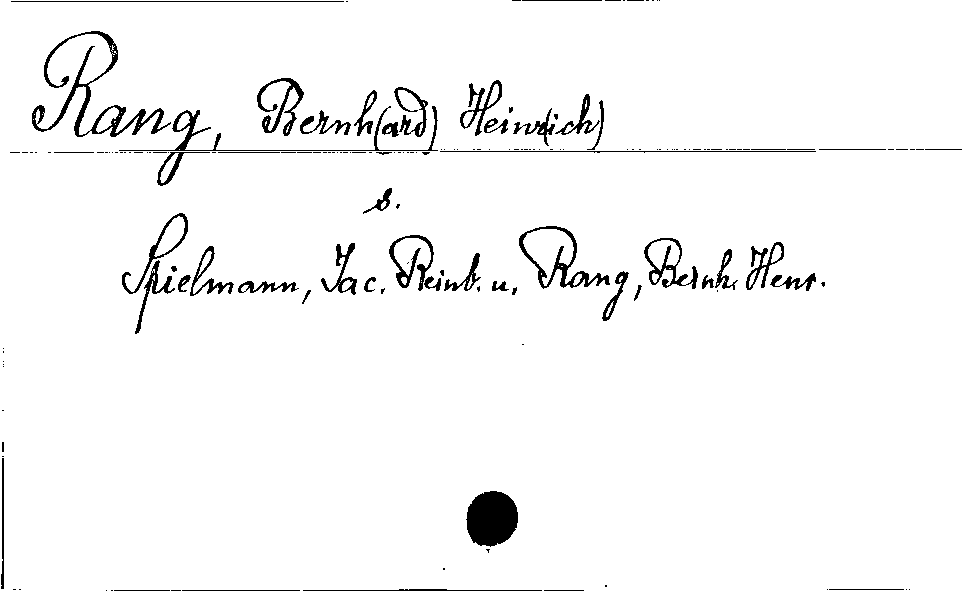 Rang, Bernh(ard) Heinr(ich)
s.
Spielmann, Jac. Reinb. u. Rang, Bernh. Henr.